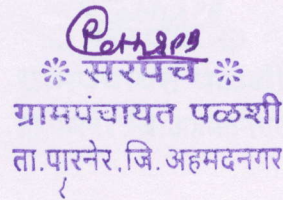 ❊ सरपंच ❊
ग्रामपंचायत पळशी
ता.पारनेर.जि.अहमदनगर